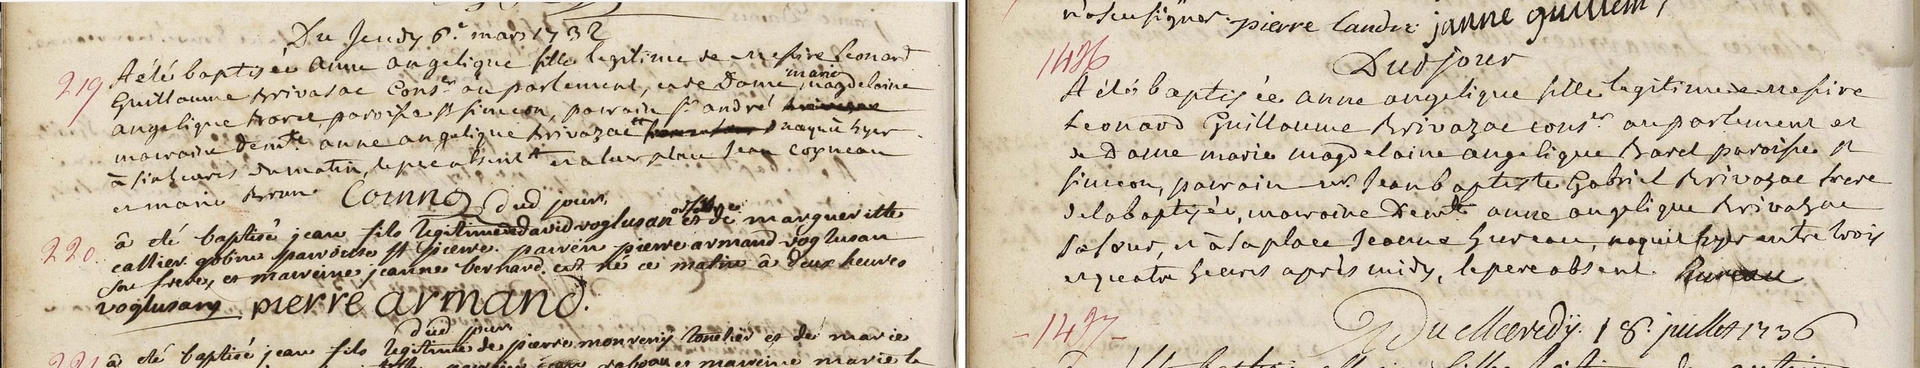 Du Jeudy 6.e mars 1732
219
A été baptisée anne angelique fille legitime de messire Leonard
Guillaume Brivazac Conser au parlement, et de Dame marie magdelaine
angelique Borel, paroisse St simeon, parrain Sr andré
marraine Demlle anne angelique Brivazac naquit hyer
à six heures du matin, le pere absent et a leur place Jean Cozneau
et marie Brun Corinno
dud jour
220
à été baptisé jean fils legitime david voglusan et de marguerite
cattier gobine parroisse St pierre. parrein pierre armand voglusan
son frere, et marreine jeanne bernard. est né ce matin à deux heures
voglusan pierre armand.
dud jour
221
à été baptisé jean fils legitime de pierre monreny tonelier et de marie
marreine marie
n'a sçeu signer. pierre landré janne guillem
1486
Dud jour
A été baptisée anne angelique fille legitime de messire
Leonard Guillaume Brivazac conser au parlement et
de Dame marie magdelaine angelique Borel paroisse St
simeon, parrain mr Jean baptiste Gabriel Brivazac frere
de la baptisée, marraine Demlle anne angelique Brivazac
sa sœur, et à sa place Jeanne hureau, naquit hyer entre trois
et quatre heures après midy, le pere absent. hureau
-1487-
Du Mercredy. 18. juillet 1736